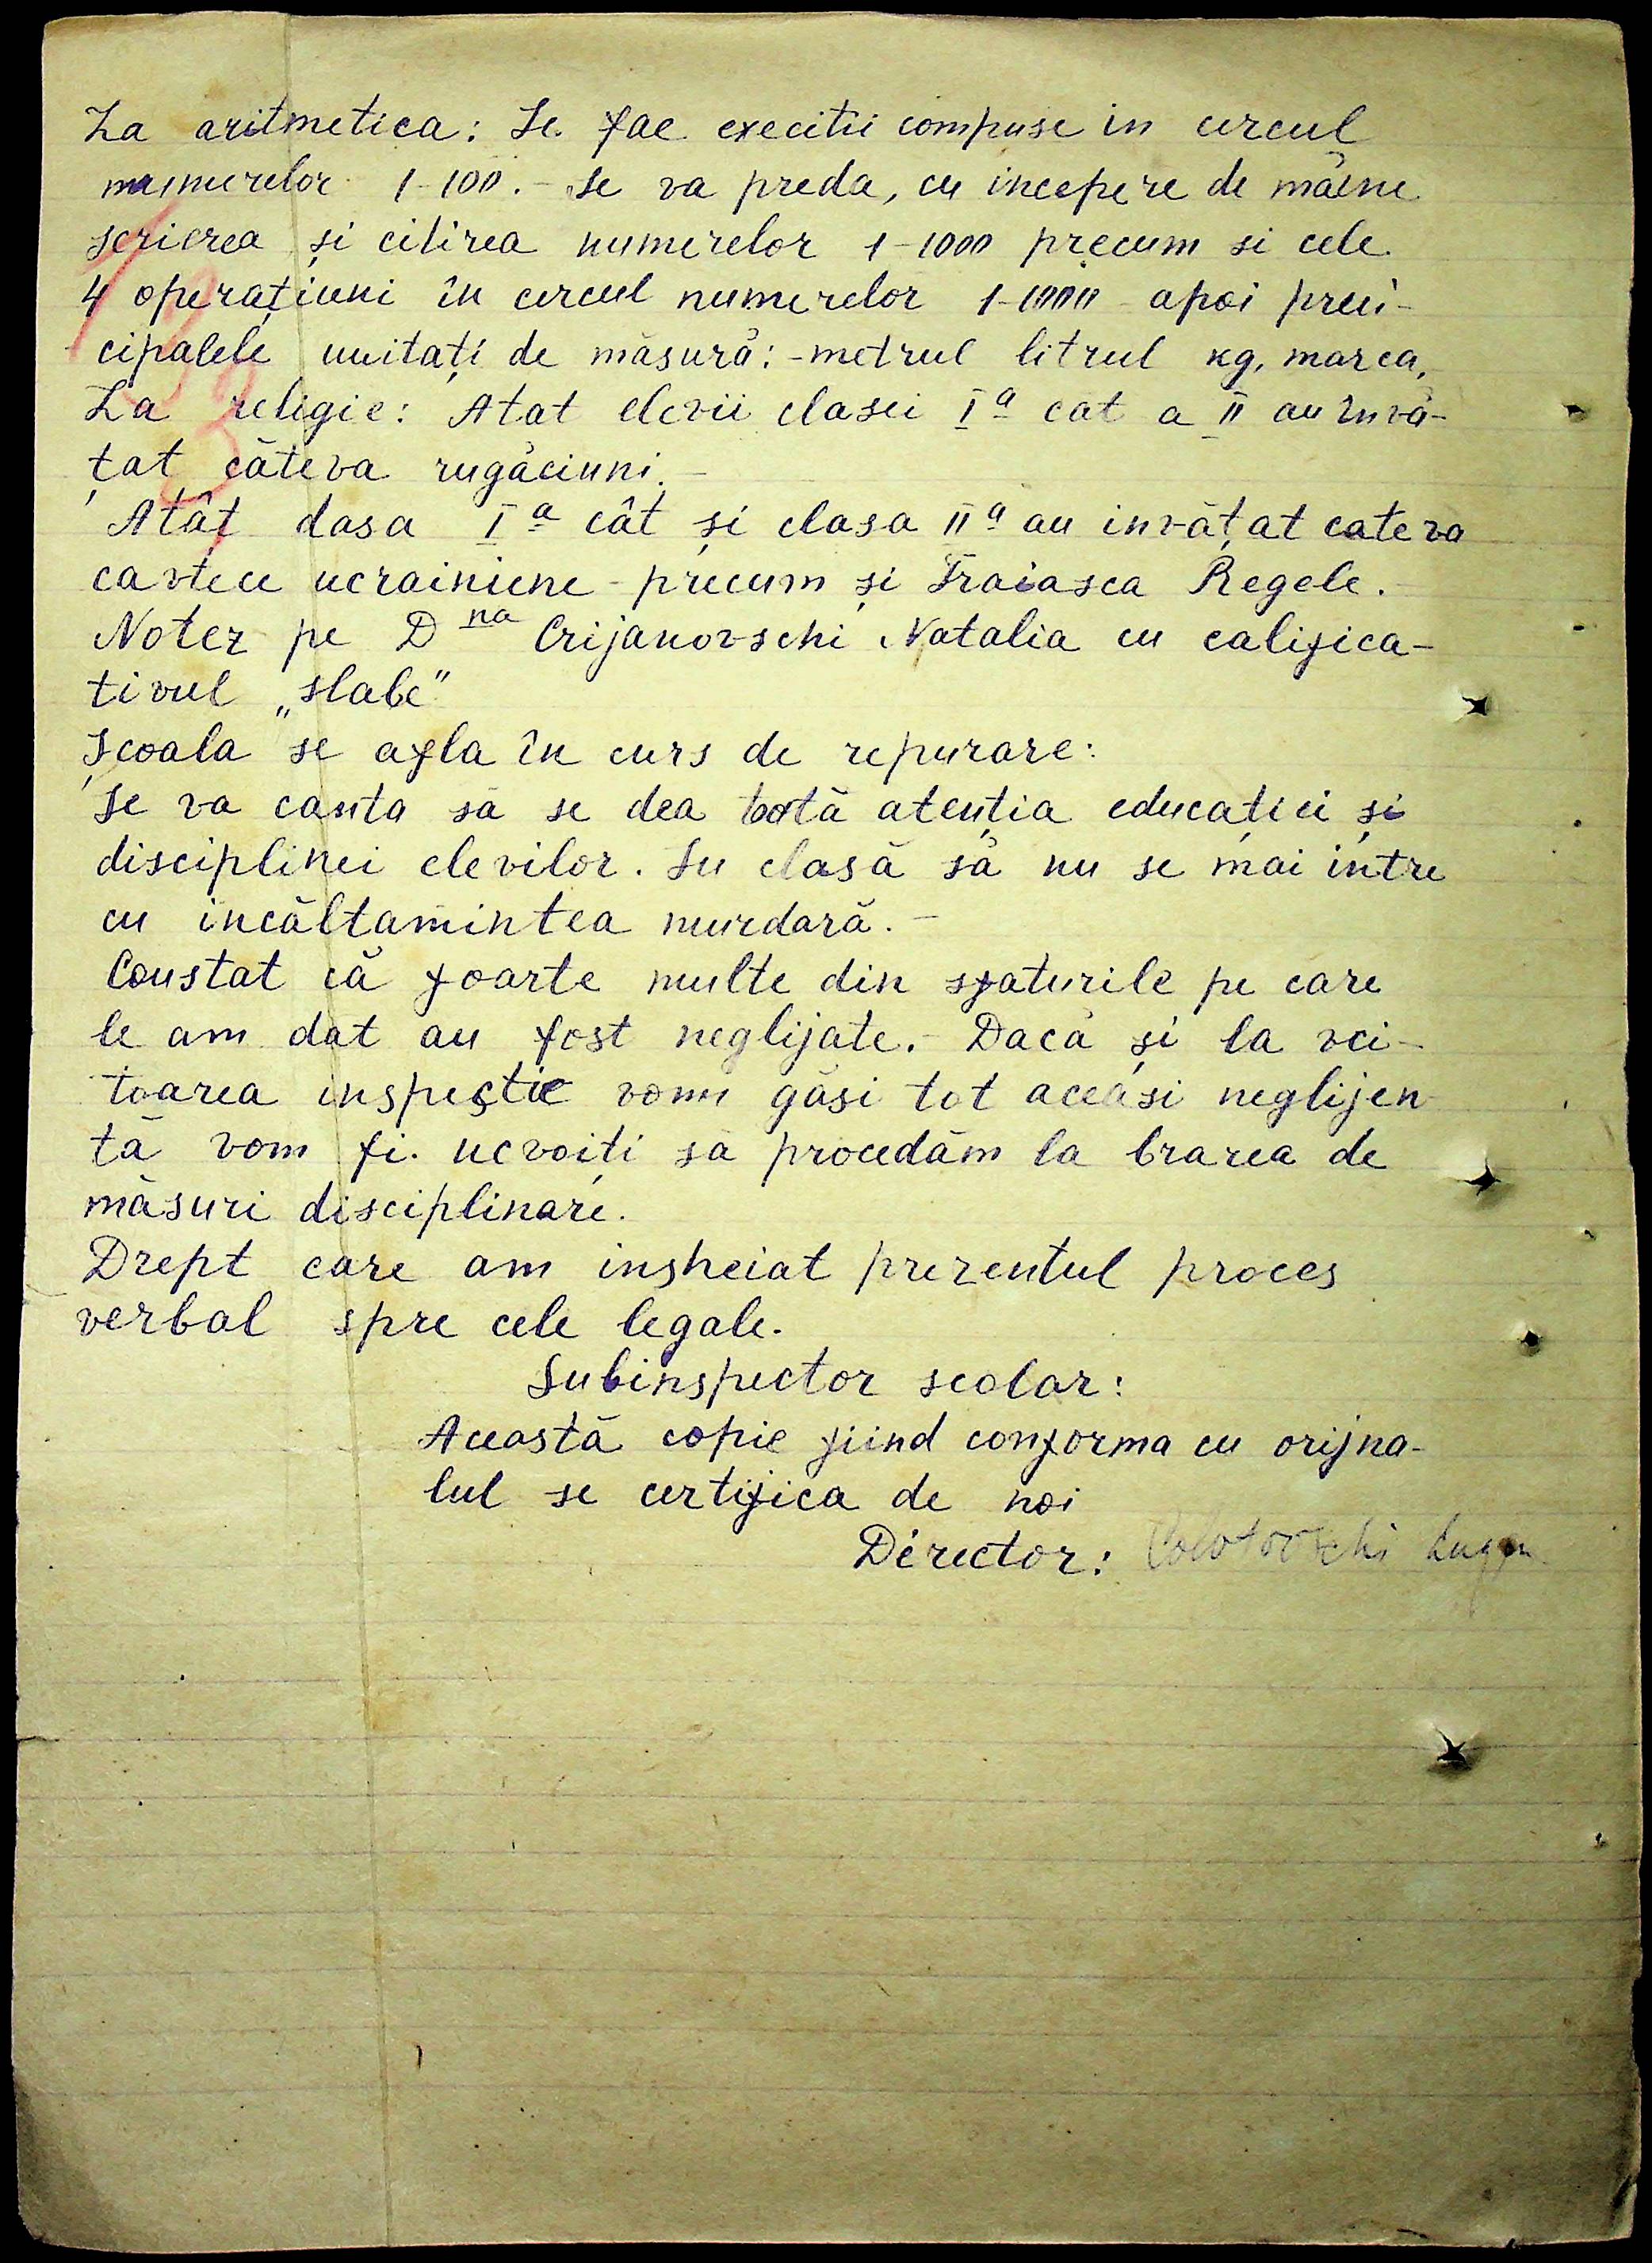 La aritmetica: Se fac execitii compuse in cercul
numerelor 1-100.- Se va preda, cu incepere de mâine
scrierea și citirea numerelor 1-1000 precum si cele
4 operațiuni în cercul numerelor 1-1000 apoi prin-
cipalele unitați de măsură:-metrul litrul kg, marca,
La religie: Atat elevii clasei I a cat a II au învă-
țat câteva rugăciuni.-
Atât clasa I a cât și clasa II a au invățat cateva
cavtece ucrainiene - precum și Traiasca Regele.-
Notez pe D na Crijanovschi Natalia cu califica-
tivul „slabe"
Școala se afla în curs de repurare:
Se va cauta sa se dea toată atenția educației și
disciplinei elevilor. In clasă să nu se mai intre
cu incăltamintea murdară.-
Constat că foarte multe din sfaturile pe care
le am dat au fost neglijate.- Dacă și la vii-
toarea inspecție vom găsi tot aceași neglijen-
tă vom fi. nevoiți să procedăm la brarea de
măsuri disciplinare.
Drept care am insheiat prezentul proces
verbal spre cele legale.
Subinspector scolar:
Această copie fiind conforma cu orijna-
lul se certifica de noi
Director: